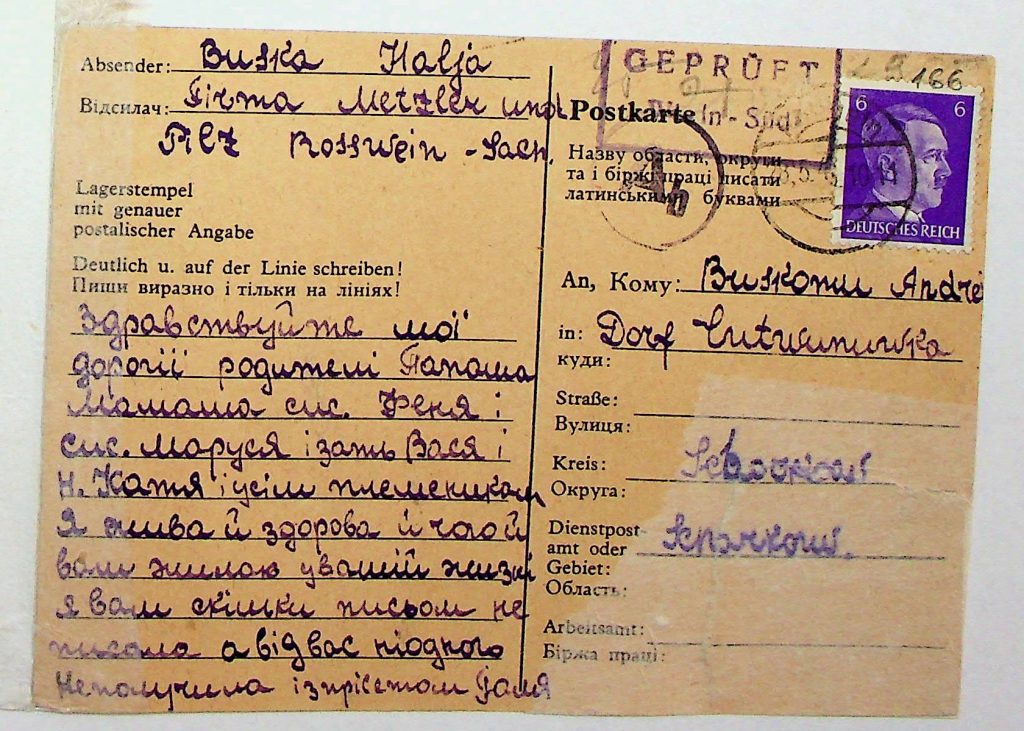 Absender: Buska Halja
Відсилач: Firma Metzler und
Pilz Rosswein - Sach.
Lagerstempel
mit genauer
postalischer Angabe
Deutlich u. auf der Linie schreiben!
Пиши виразно і тільки на лініях!
Здравствуйте мої
дорогії родителі Папаша
Мамаша сис. Феня і
сис. Маруся і зать Вася і
н. Катя і усім племеникам
Я жива й здорова й чого й
вам желаю у вашій жизні
я вам скільки письом не
писала а від вас ніодного
неполучила із прівєтом Галя
GEPRÜFT
Postkarte
Назву области, округи
та і біржі праці писати
латинськими буквами
Ab
166
6 6
DEUTSCHES REICH
An, Кому: Buskomu Andre
in: Dorf
куди:
Straße:
Вулиця:
Kreis:
Округа:
Dienstpost-
amt oder
Gebiet:
Область:
Arbeitsamt:
Біржа праці: